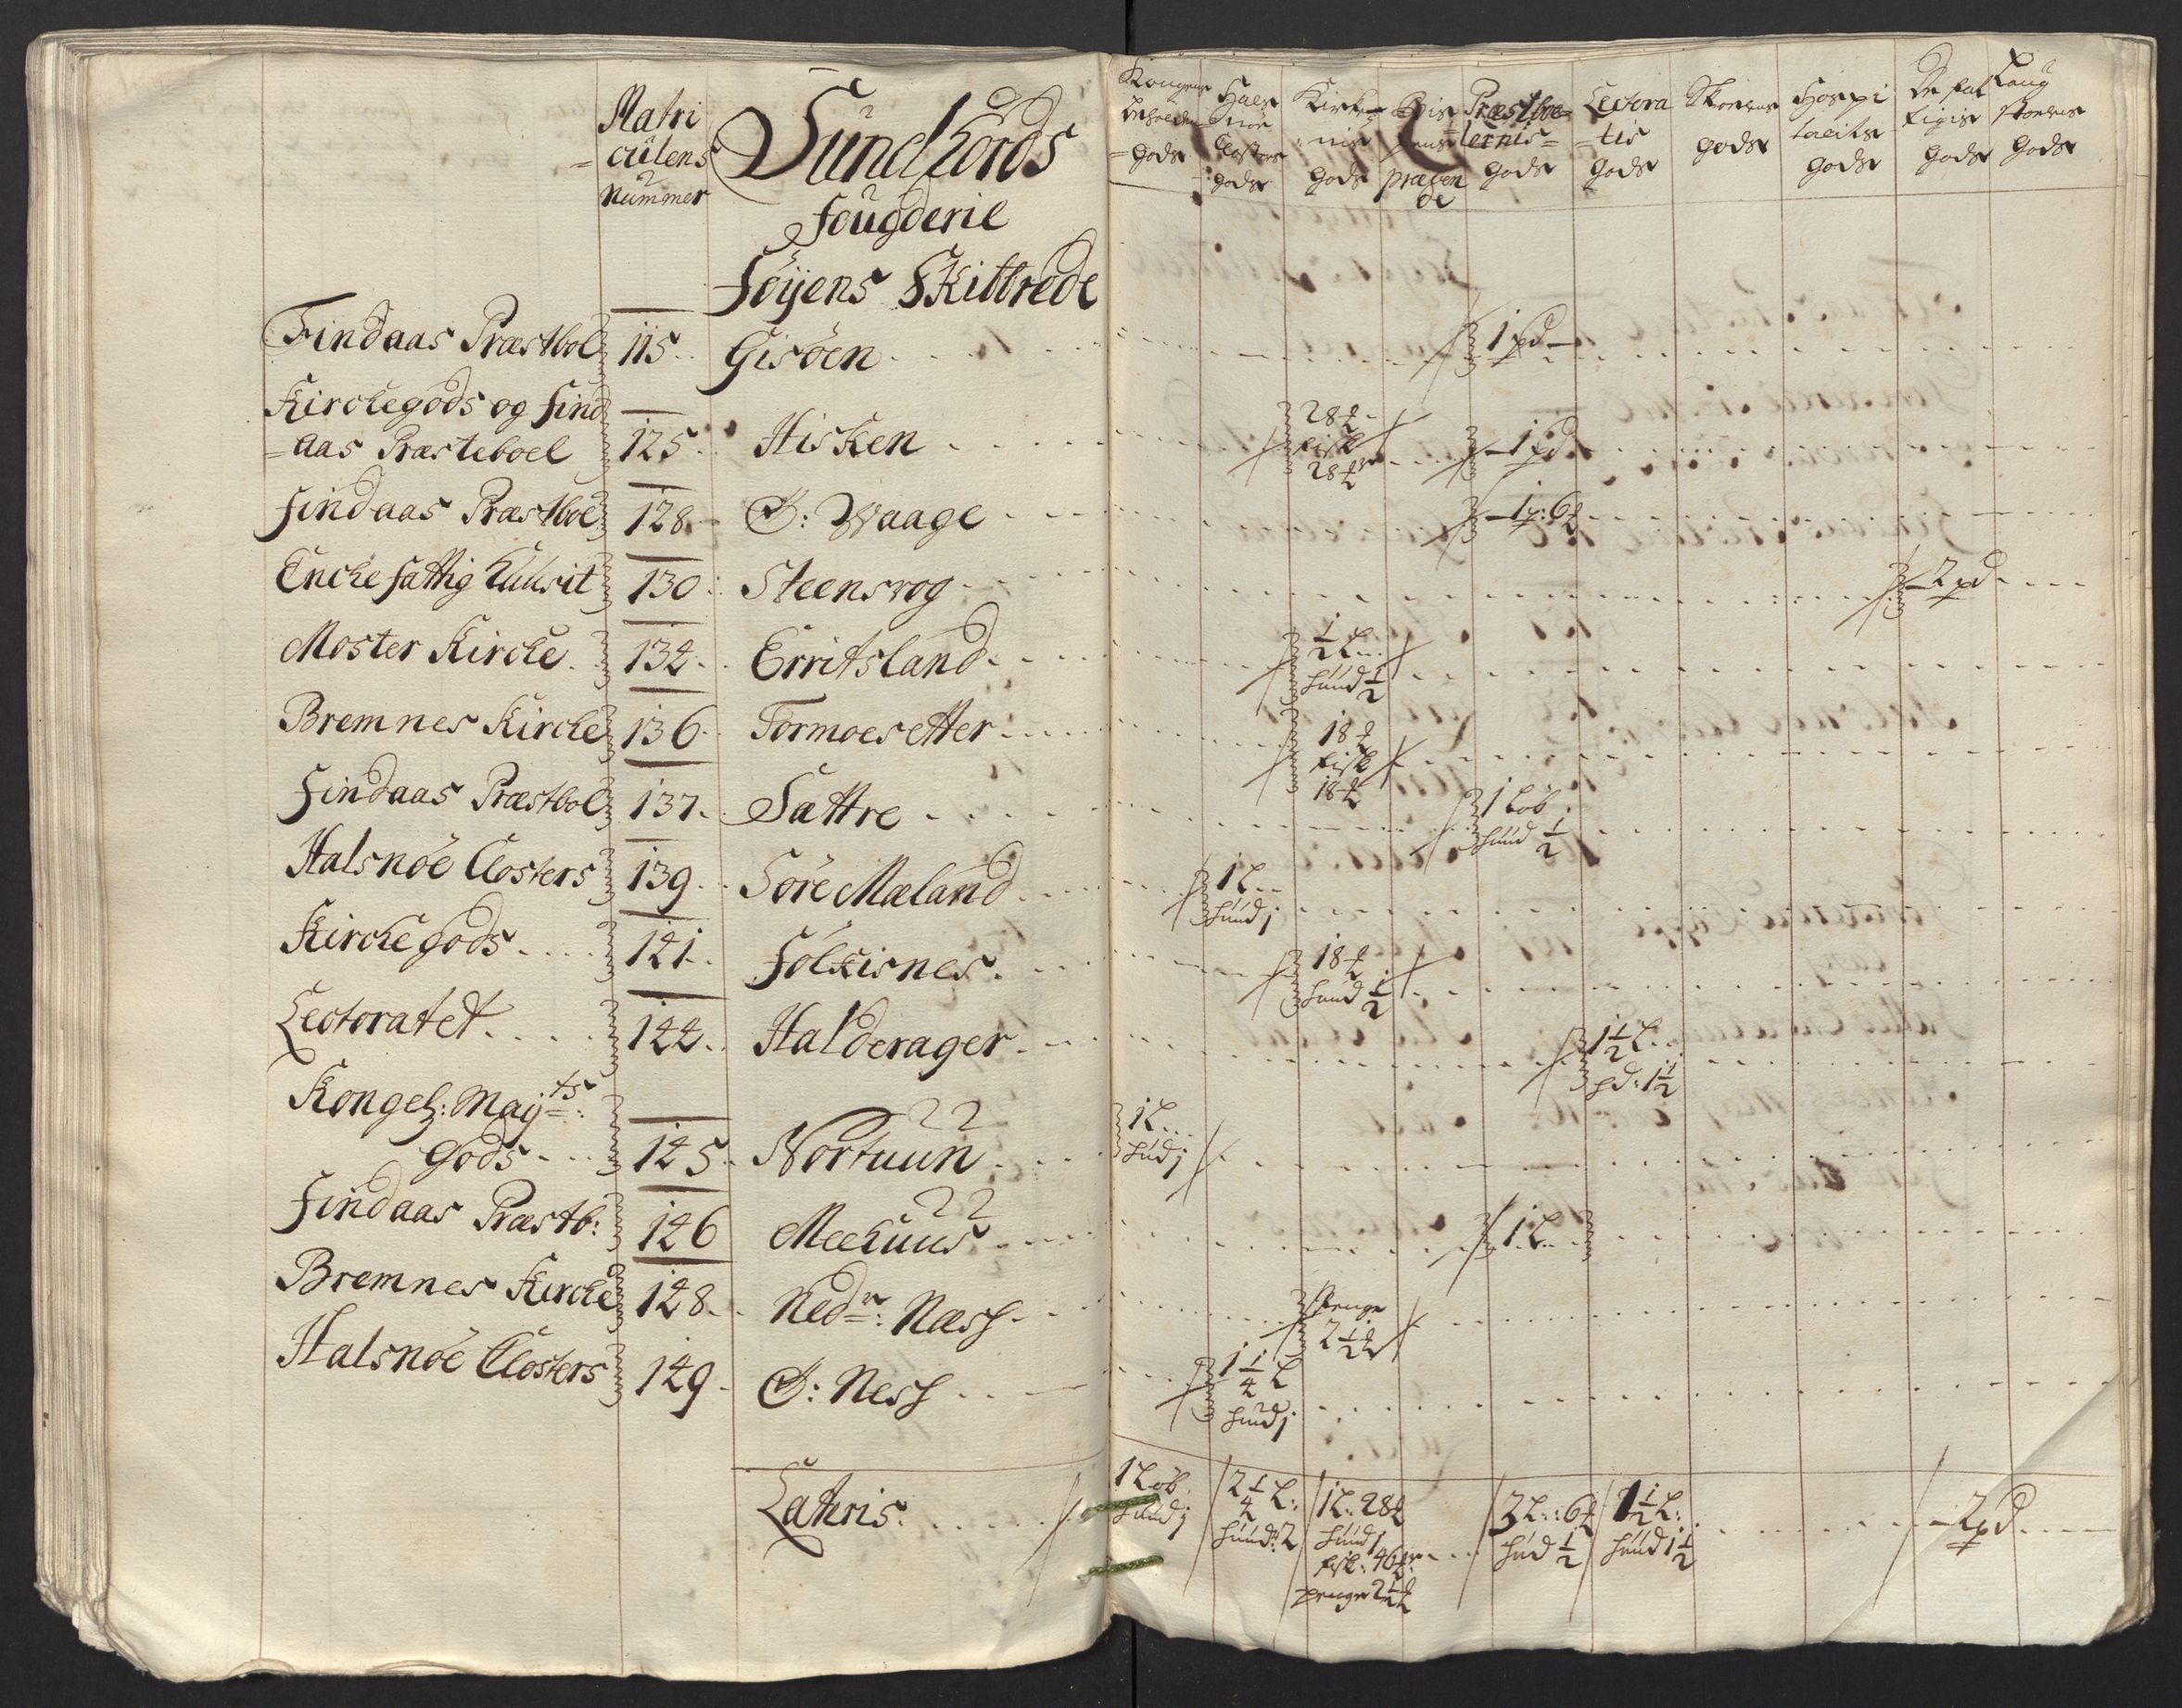 Matri
=culens
Nummer
Sundhords
fougderie
Föÿens Skibbrede
Kongens
beholden
=Gods
Hals
nöe
Closters
Gods
Kirker
nis
Gods
præben
de
Præstboe=
lernis=
Gods
Lectora
=tis
Gods
Skolens
Gods
Hospi
talets
Gods
De fat
tigis
Gods
Laug
stolens
Gods
Findaas Præstbol 115 Gisöen 1 pd
Kirchegods og find
=aas Præsteboel 125 Hisken 28 fisk 28 1 pd
findaas Præstboe 128 Ö: Waage
Encke fattig huusit 130 Steensvog 2 pd
Moster Kirche 134 Erritsland 1/2 L huud 1/2
Bremnes Kirche 136 Tormoesetter 18 fisk 18
findaas Præstbol 137 Sattre 1 Löb huud 1/2
Halsnöe Closters 139 Söre Mæland 1 L huud j
Kirche gods 141 fölkisnes 18 huud 1/2
Lectoratet 144 Halderager 1 1/2 L
Kongel: Maÿts:
Gods 145 Nortuun 1 L hud j
findaas Præstb: 146 Meehuus 1 L
Bremnes Kirche 148 Nedr: Næss penge 2 1/2
Halsnöe Closters 149 Ö: Ness 1 1/4 L huud j
Lateris
1 Löb
huud j
2 1/4 L:
huud: 2
1 L: 28
huud j
fisk: 46
penge 2 1/2
3 L: 6
hud 1/2
1 1/2 L:
huud 1 1/2
2 pd